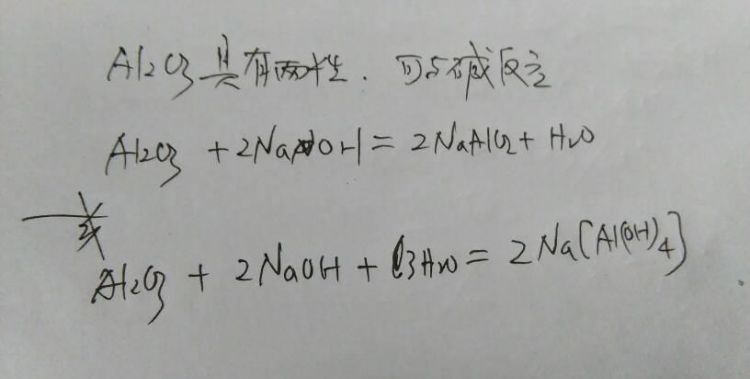 Al₂O₃具有两性. 可与碱反应
Al₂O₃ + 2NaOH = 2NaAlO₂ + H₂O
或
Al₂O₃ + 2NaOH + 3H₂O = 2Na[Al(OH)₄]